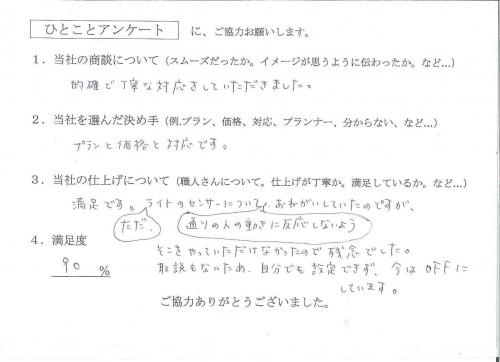 ひとことアンケート に、ご協力お願いします。
1．当社の商談について（スムーズだったか。イメージが思うように伝わったか。など…）
的確で丁寧な対応をしていただきました。
2．当社を選んだ決め手（例.プラン、価格、対応、プランナー、分からない、など…）
プランと価格と対応です。
3．当社の仕上げについて（職人さんについて。仕上げが丁寧か。満足しているか。など…）
満足です。ライトのセンサーについて、おねがいしていたのですが、
ただ、 通りの人の動きに反応しないよう
4．満足度
そこをやっていただけなかったので残念でした。
90 %
取説もないため、自分でも設定できず、今はOFFに
しています。
ご協力ありがとうございました。